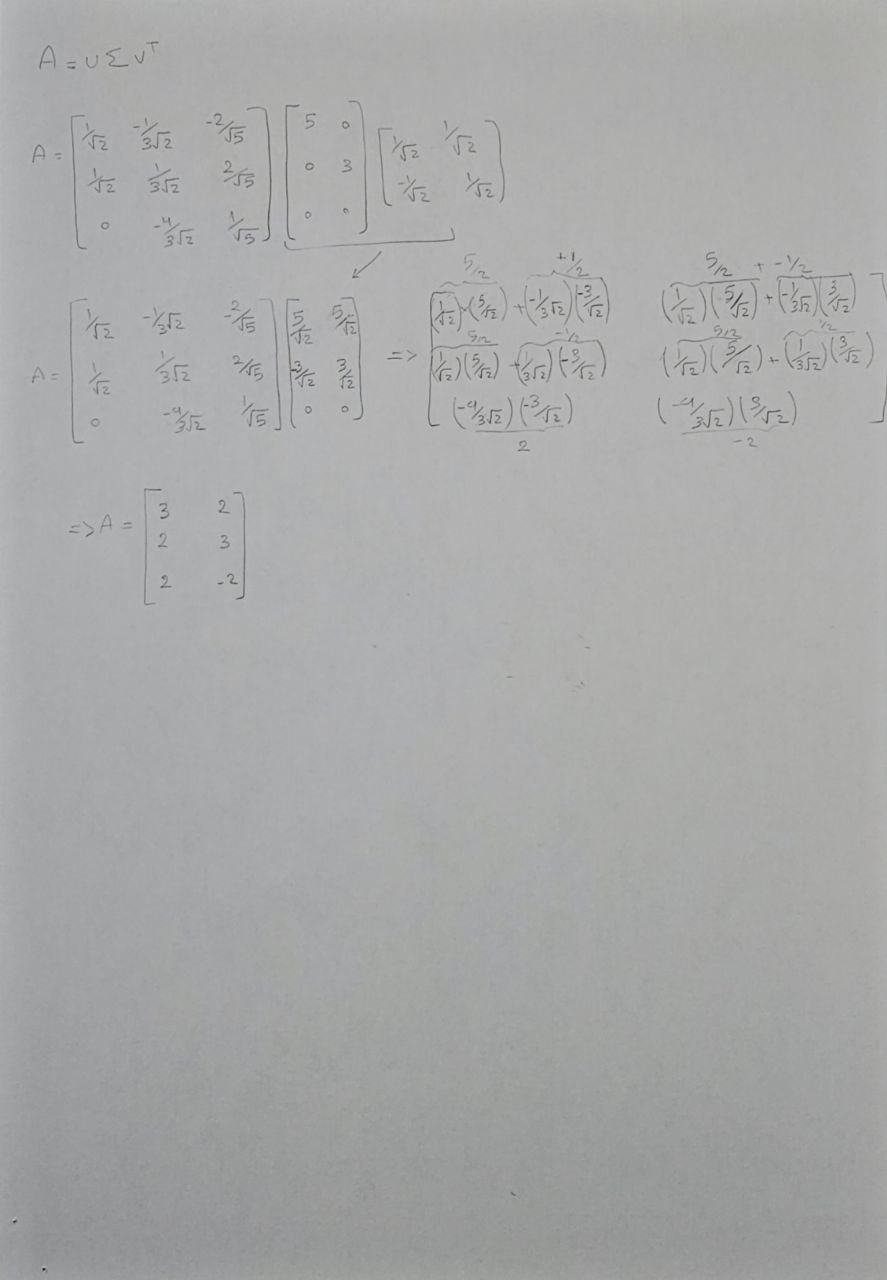 A = U Σ V^T
A = [1/√2 -1/3√2 -2/√5; 1/√2 1/3√2 2/√5; 0 -4/3√2 1/√5] [5 0; 0 3; 0 0] [1/√2 1/√2; -1/√2 1/√2]
A = [1/√2 -1/3√2 -2/√5; 1/√2 1/3√2 2/√5; 0 -4/3√2 1/√5] [5/√2 5/√2; -3/√2 3/√2; 0 0] => [(1/√2)(5/√2) + (-1/3√2)(-3/√2) (1/√2)(5/√2) + (-1/3√2)(3/√2); (1/√2)(5/√2) + (1/3√2)(-3/√2) (1/√2)(5/√2) + (1/3√2)(3/√2); (-4/3√2)(-3/√2) (-4/3√2)(3/√2)]
5/2 +1/2 5/2 + -1/2
5/2 -1/2 5/2 1/2
2 -2
=> A = [3 2; 2 3; 2 -2]